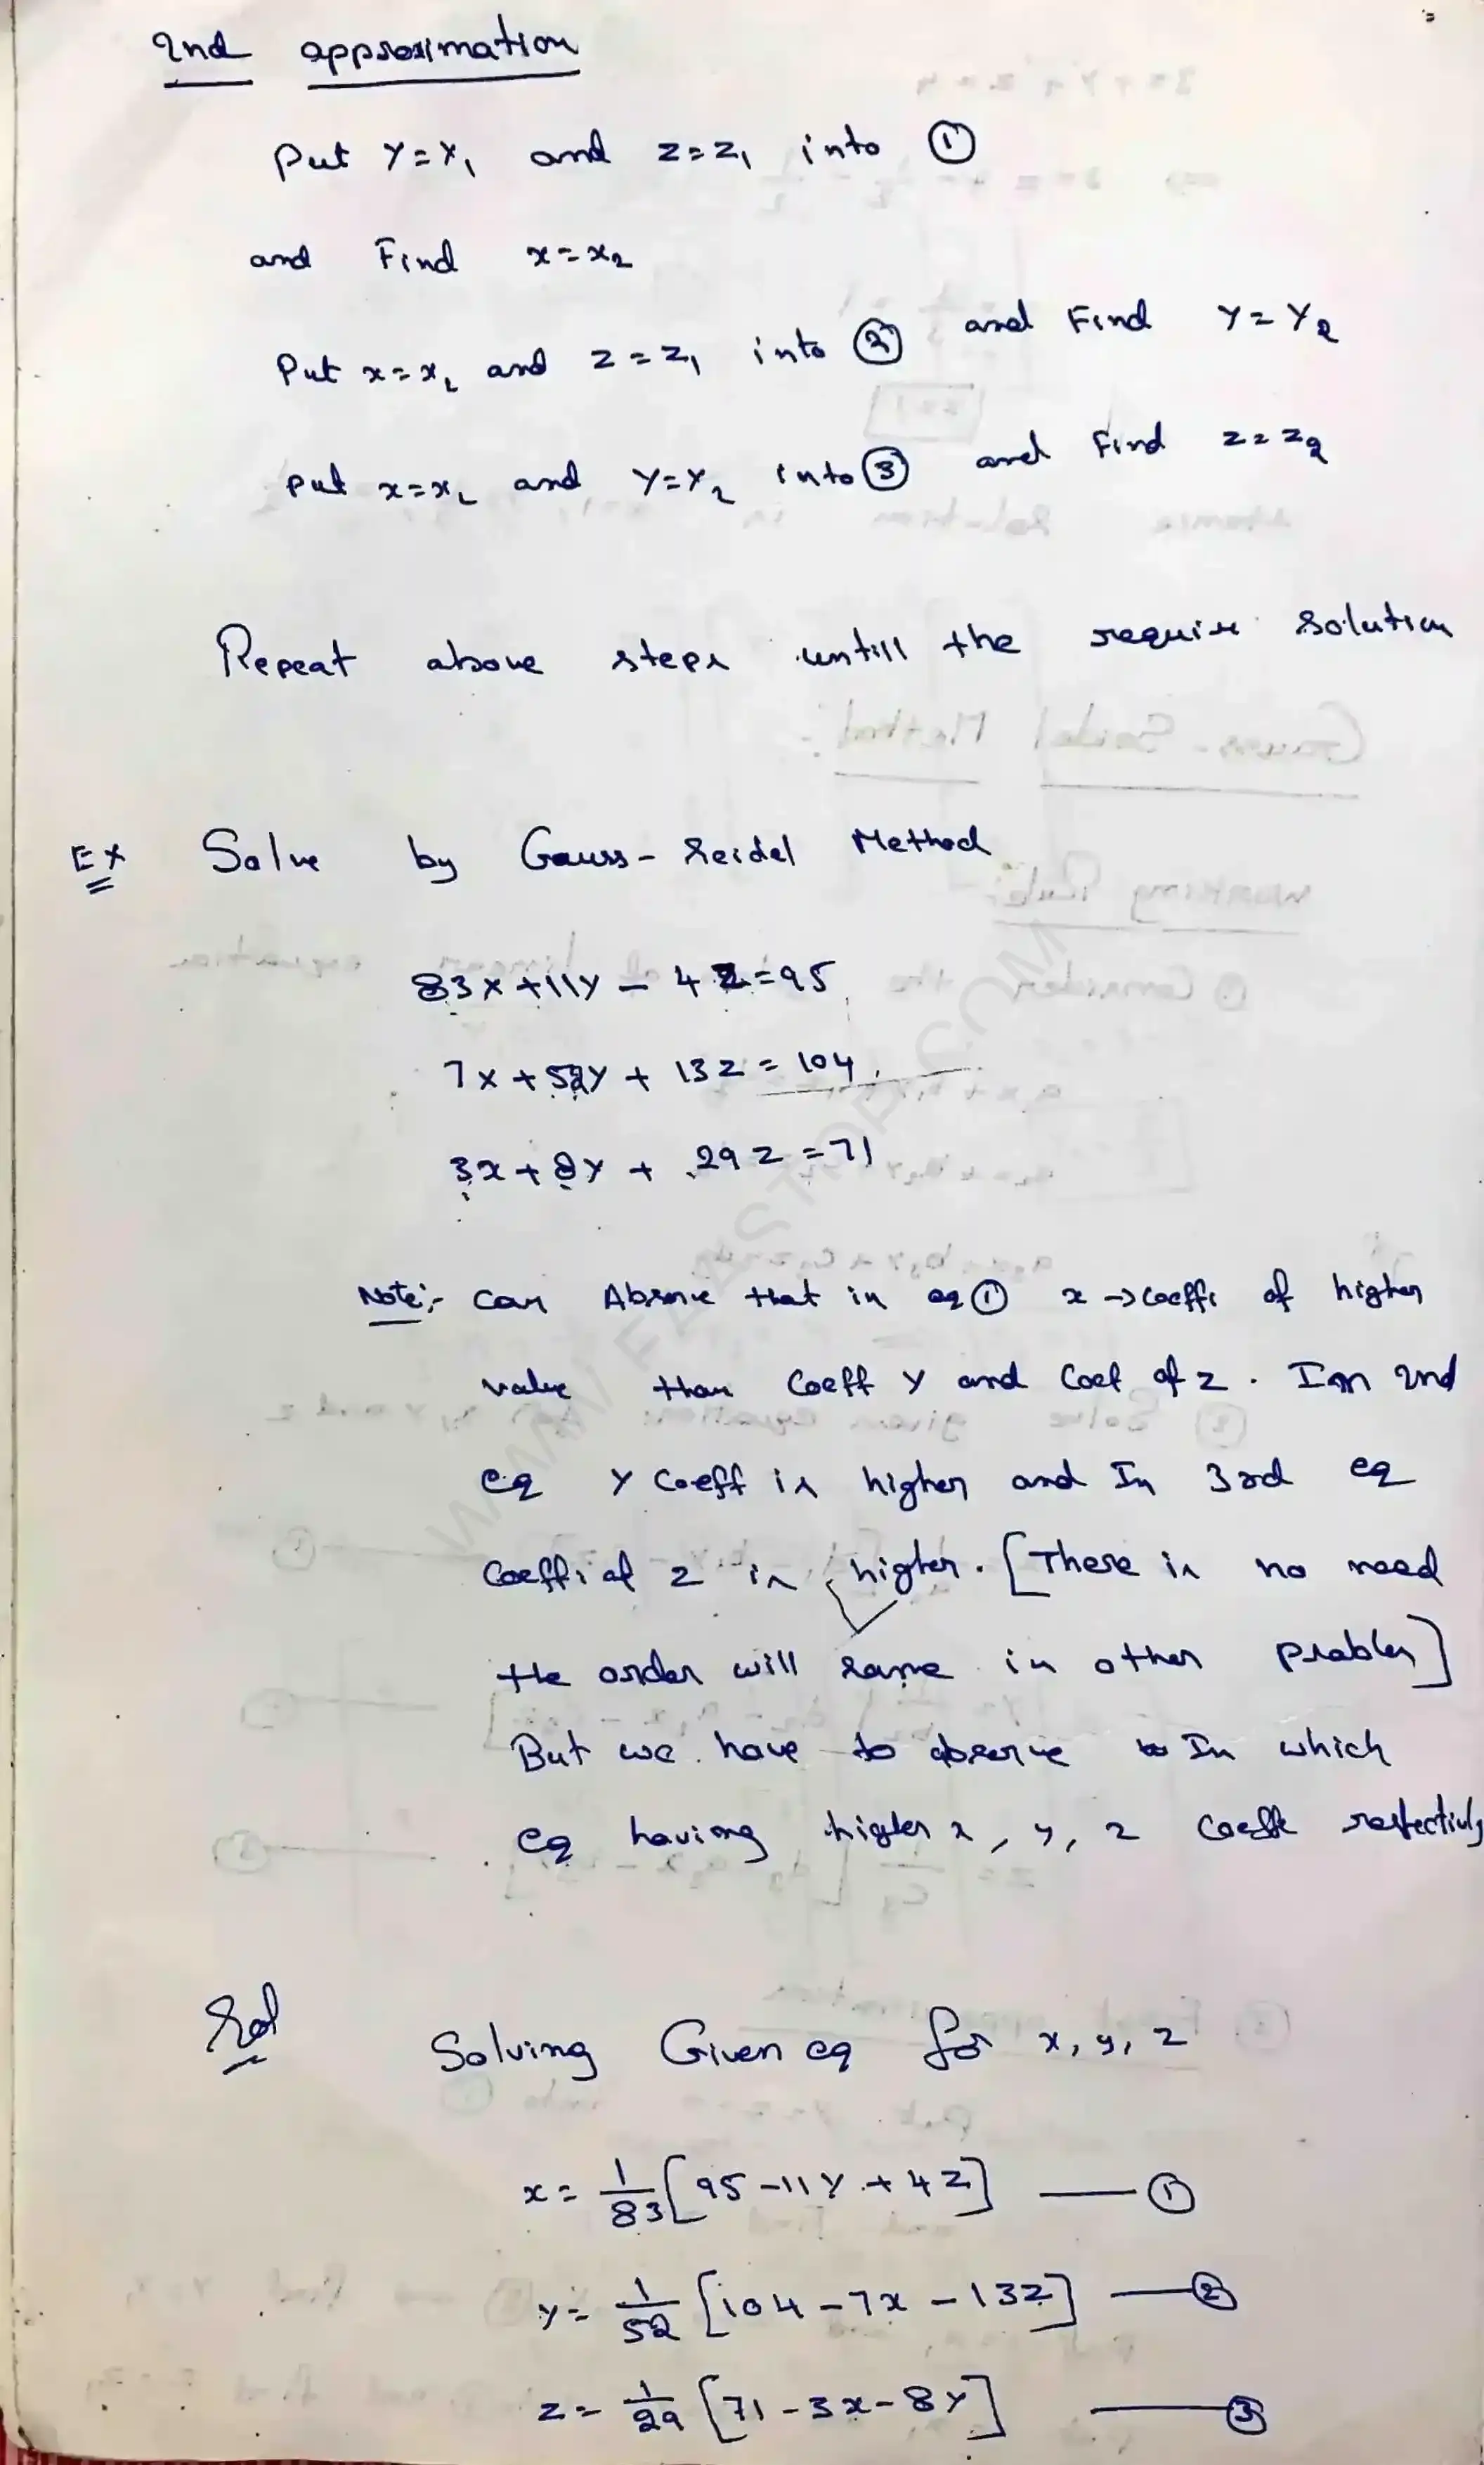 2nd approximation
Put Y=Y₁ and z=z₁ into ①
and Find x=x₂
Put x=x₂ and z=z₁ into ② and Find Y=Y₂
Put x=x₂ and Y=Y₂ into ③ and Find z=z₂
Repeat above steps untill the require solution
Ex Solve by Gauss-Seidel Method
83x+11y-4z=95
7x+52y+13z=104
3x+8y+29z=71
Note:- Can Absrve that in eq① x→coeffi of higher
value than Coeff y and Coef of z. Inn 2nd
eq y coeff is higher and In 3rd eq
Coeffi of z is higher. [There is no need
the order will same in other problem]
But we have to observe In which
eq having higher x, y, z Coeffi respectively
Sol Solving Given eq for x, y, z
x = 1/83 [95-11y+4z] —①
y = 1/52 [104-7x-13z] —②
z = 1/29 [71-3x-8y] —③